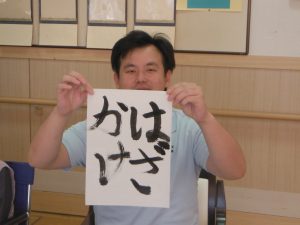 はざ
かけ